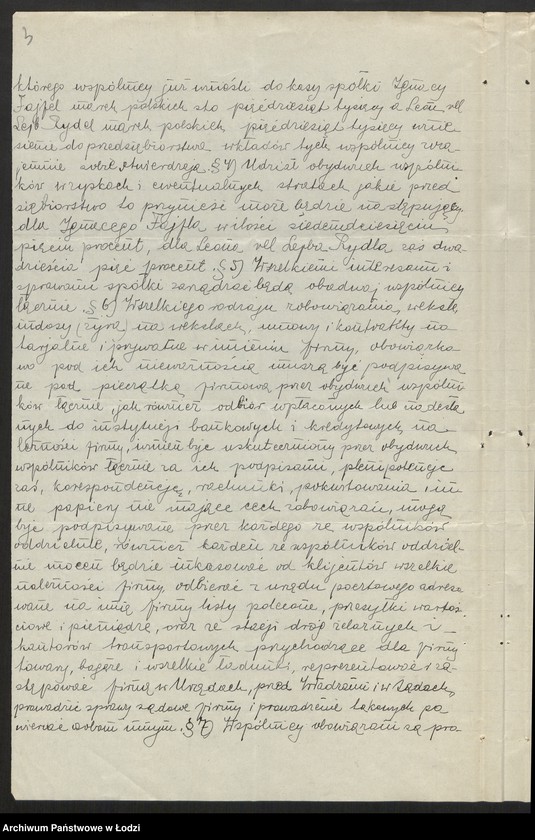 3
którego wspólnicy już wnieśli do kasy spółki Ignacy
Fajfel marek polskich sto pięćdziesiąt tysięcy a Leon vel
Lejb Rydel marek polskich pięćdziesiąt tysięcy wnie-
sienie do przedsiębiorstwa wkładów tych wspólnicy wza-
jemnie sobie stwierdzają. § 4) Udział obydwuch wspólni-
ków w zyskach i ewentualnych stratach jakie przed
siębiorstwo to przynieść może będzie następujący
dla Ignacego Fajfla w ilości siedemdziesięciu
pięciu procent, dla Leona vel Lejba Rydla zaś dwa-
dzieścia pięć procent. § 5) Wszelkiemi interesami i
sprawami spółki zarządzać będą obadwaj wspólnicy
łącznie. § 6) Wszelkiego rodzaju zobowiązania, weksle,
indosy (żyra) na wekslach, umowy i kontrakty no-
tarjalne i prywatne w imieniu firmy, obowiązko-
wo pod ich nieważnością muszą być podpisywa
ne pod pieczątką firmową przez obydwuch wspólni
ków łącznie jak również odbiór wpłaconych lub nadesła
nych do instytucji bankowych i kredytowych na-
leżności firmy, winien być uskuteczniony przez obydwuch
wspólników łącznie za ich podpisami, plenipotencje
zaś, korespondencję, rachunki, pokwitowania i in-
ne papiery nie mające cech zobowiązań, mogą
być podpisywane przez każdego ze wspólników
oddzielnie, również każden ze wspólników oddziel-
nie mocen będzie inkasować od klijentów wszelkie
należności firmy odbierać z urzędu pocztowego adreso
wane na imię firmy listy polecone, przesyłki wartoś-
ciowe i pieniądze, oraz ze stacji dróg żelaznych i
kantorów transportowych przychodzące dla firmy
towary, bagaże i wszelkie ładunki, reprezentować i za-
stępować firmę w Urzędach, przed Władzami i w Sądach,
prowadzić sprawy sądowe firmy i prowadzenie takowych po
wierzać osobom innym. § 7) Wspólnicy obowiązani są pra
Archiwum Państwowe w Łodzi